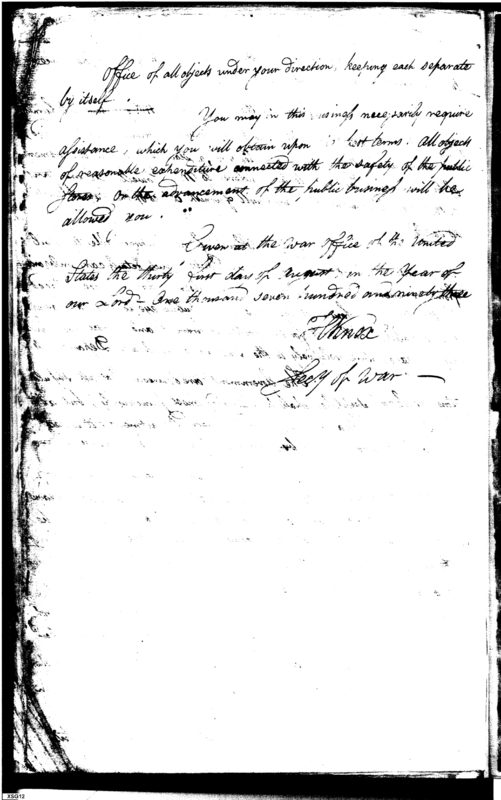 Office of all objects under your direction, keeping each separate
by itself.
You may in this business necessarily require
assistance, which you will obtain upon best terms. All objects
of reasonable expenditure connected with the safety of the public
stores, or the advancement of the public business will be
allowed you.
Given at the War office of the United
States the thirty first day of august in the Year of
our Lord - One thousand seven hundred and ninety three
HKnox
Secy of War
XSG12